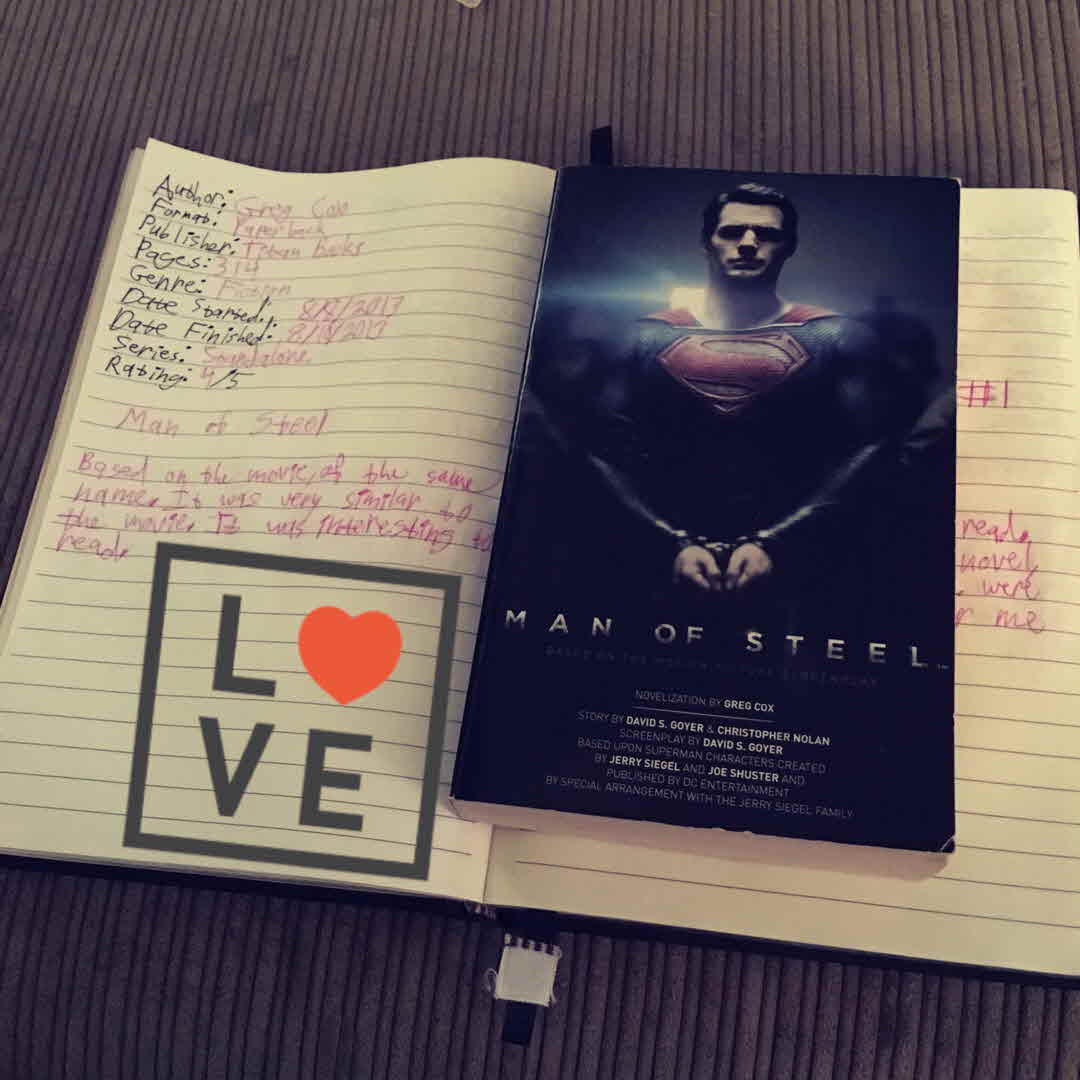 Author: Greg Cox
Format: Paperback
Publisher: Titan Books
Pages: 314
Genre: Fiction
Date Started: 8/8/2017
Date Finished: 8/18/2017
Series: Standalone
Rating: 4/5
Man of Steel
Based on the movie of the same
name. It was very similar to
the movie. It was interesting to
read.
L
VE
MAN OF STEEL
BASED ON THE MOTION PICTURE SCREENPLAY
NOVELIZATION BY GREG COX
STORY BY DAVID S. GOYER & CHRISTOPHER NOLAN
SCREENPLAY BY DAVID S. GOYER
BASED UPON SUPERMAN CHARACTERS CREATED
BY JERRY SIEGEL AND JOE SHUSTER AND
PUBLISHED BY DC ENTERTAINMENT
BY SPECIAL ARRANGEMENT WITH THE JERRY SIEGEL FAMILY
#1
read,
novel,
were
me